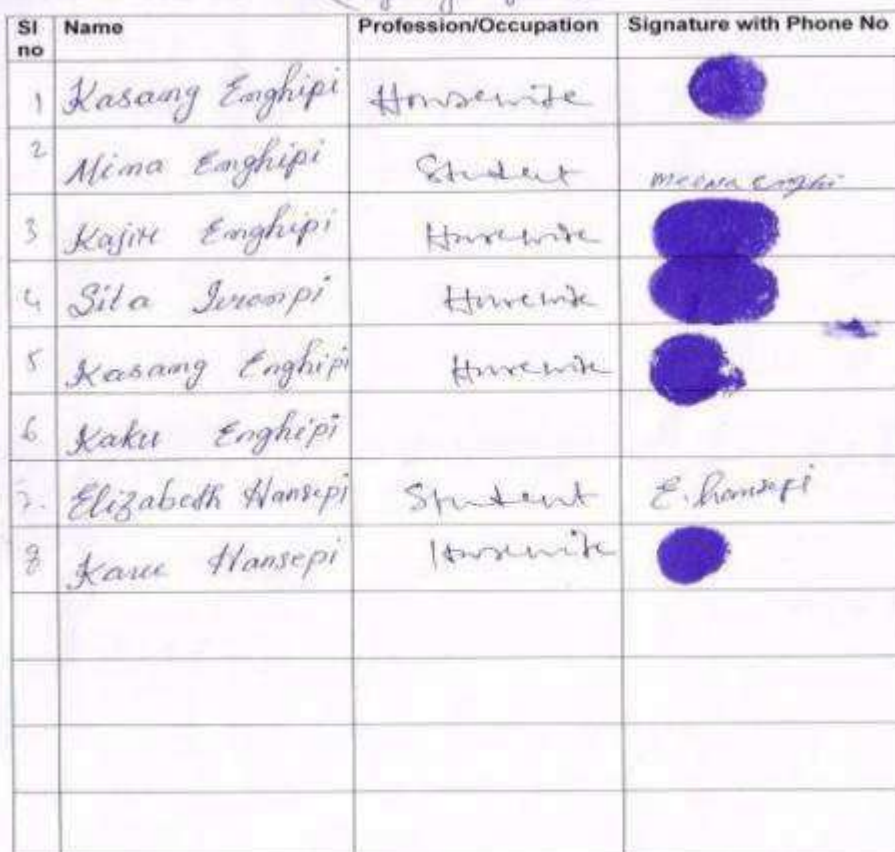 Sl no Name Profession/Occupation Signature with Phone No
1 Kasang Enghipi Housewife
2 Mima Enghipi Student meena enghi
3 Kajir Enghipi Housewife
4 Sita Ivronpi Housewife
5 Kasang Enghipi Housewife
6 Kaku Enghipi
7. Elizabeth Hansepi Student E. hansepi
8 Karee Hansepi Housewife